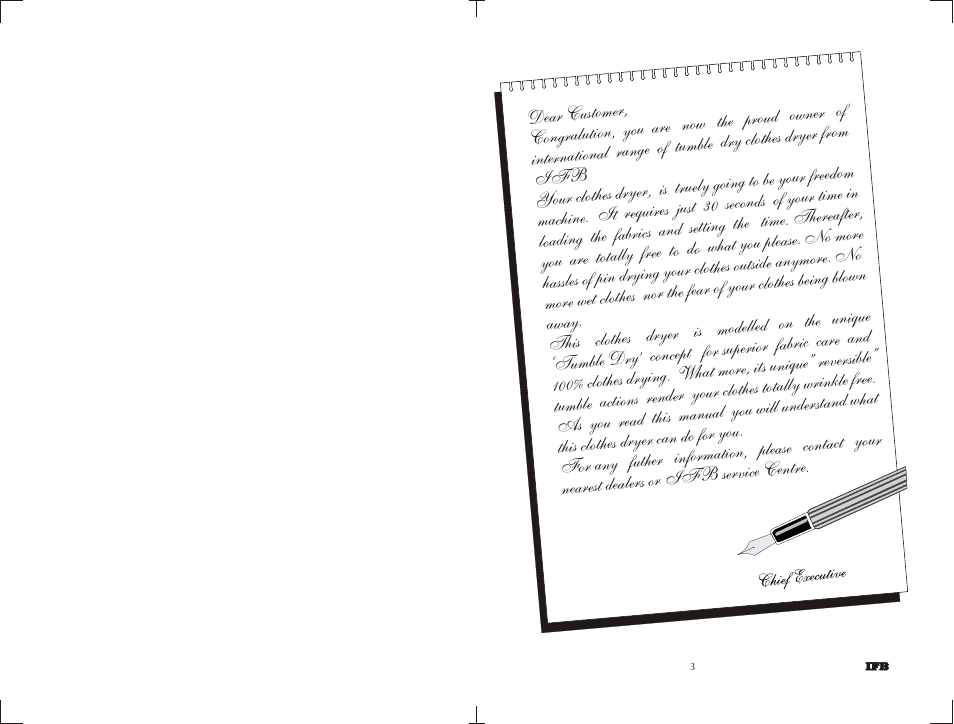 Dear Customer,
Congralution, you are now the proud owner of
international range of tumble dry clothes dryer from
IFB
Your clothes dryer, is truely going to be your freedom
machine. It requires just 30 seconds of your time in
loading the fabrics and setting the time. Thereafter,
you are totally free to do what you please. No more
hassles of pin drying your clothes outside anymore. No
more wet clothes nor the fear of your clothes being blown
away.
This clothes dryer is modelled on the unique
'Tumble Dry' concept for superior fabric care and
100% clothes drying. What more, its unique" reversible"
tumble actions render your clothes totally wrinkle free.
As you read this manual you will understand what
this clothes dryer can do for you.
For any futher information, please contact your
nearest dealers or IFB service Centre.
Chief Executive
3
IFB